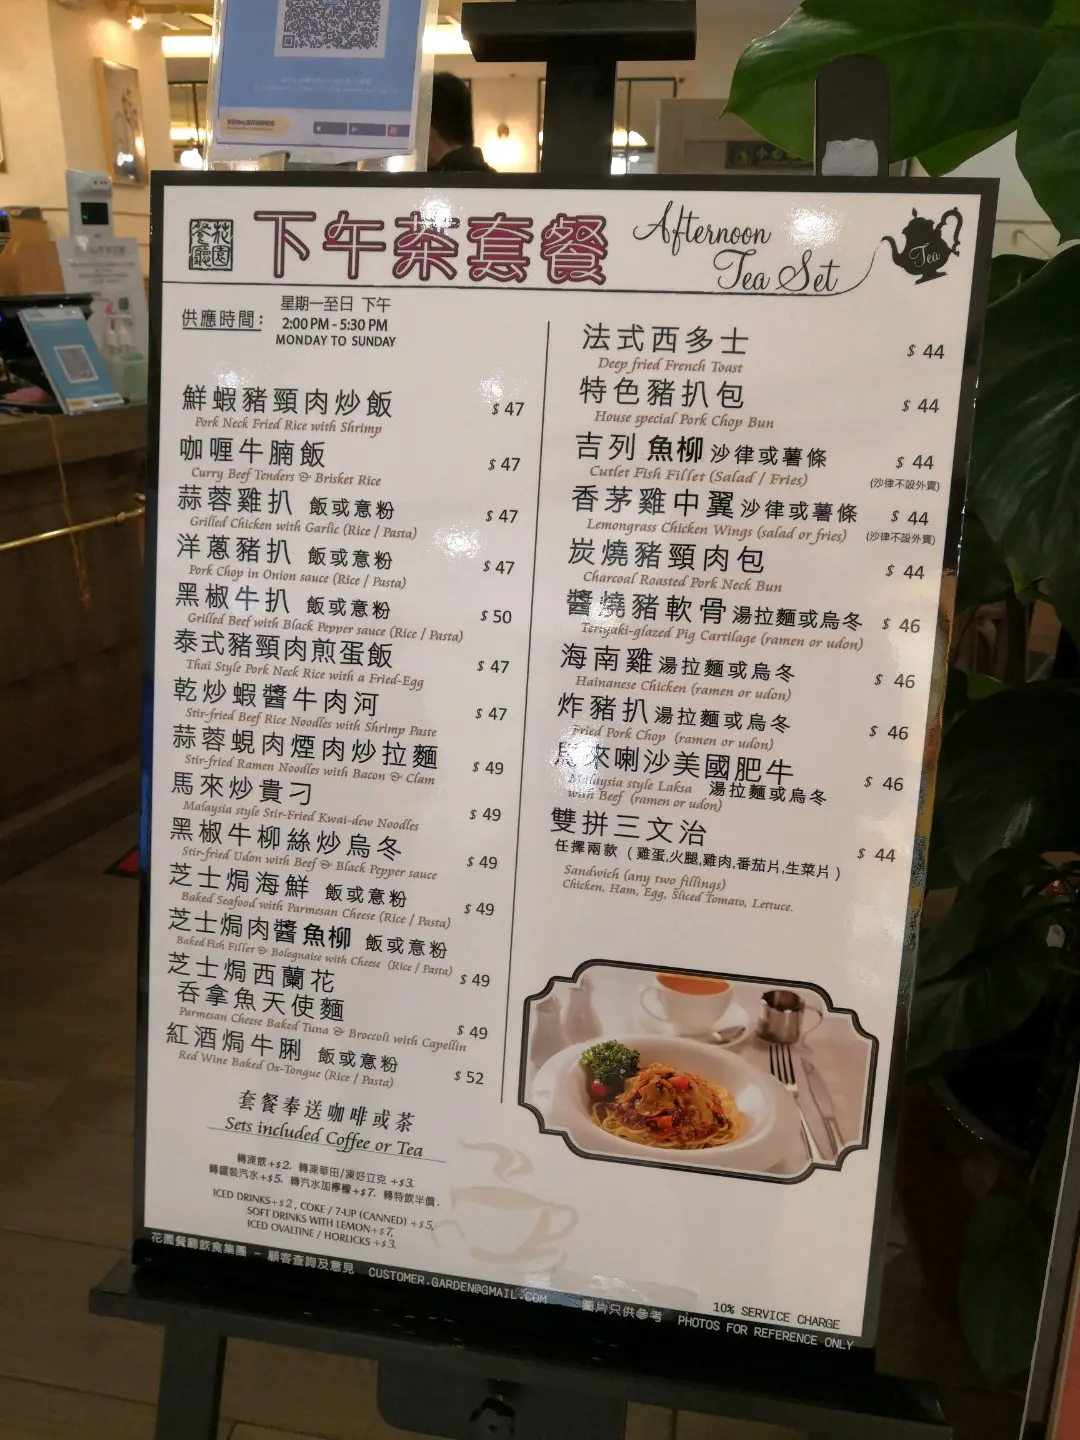 花園餐廳
下午茶套餐
Afternoon
Tea Set
Tea
供應時間：
星期一至日 下午
2:00 PM - 5:30 PM
MONDAY TO SUNDAY
鮮蝦豬頸肉炒飯 $ 47
Pork Neck Fried Rice with Shrimp
咖喱牛腩飯 $ 47
Curry Beef Tenders & Brisket Rice
蒜蓉雞扒 飯或意粉 $ 47
Grilled Chicken with Garlic (Rice / Pasta)
洋蔥豬扒 飯或意粉 $ 47
Pork Chop in Onion sauce (Rice / Pasta)
黑椒牛扒 飯或意粉 $ 50
Grilled Beef with Black Pepper sauce (Rice / Pasta)
泰式豬頸肉煎蛋飯 $ 47
Thai Style Pork Neck Rice with a Fried-Egg
乾炒蝦醬牛肉河 $ 47
Stir-fried Beef Rice Noodles with Shrimp Paste
蒜蓉蜆肉煙肉炒拉麵 $ 49
Stir-fried Ramen Noodles with Bacon & Clam
馬來炒貴刁 $ 49
Malaysia style Stir-Fried Kwai-dew Noodles
黑椒牛柳絲炒烏冬 $ 49
Stir-fried Udon with Beef & Black Pepper sauce
芝士焗海鮮 飯或意粉 $ 49
Baked Seafood with Parmesan Cheese (Rice / Pasta)
芝士焗肉醬魚柳 飯或意粉 $ 49
Baked Fish Fillet & Bolognaise with Cheese (Rice / Pasta)
芝士焗西蘭花
吞拿魚天使麵 $ 49
Parmesan Cheese Baked Tuna & Broccoli with Capellin
紅酒焗牛脷 飯或意粉 $ 52
Red Wine Baked Ox-Tongue (Rice / Pasta)
套餐奉送咖啡或茶
Sets included Coffee or Tea
轉凍飲+$2. 轉凍華田/凍好立克 +$3.
轉罐裝汽水+$5. 轉汽水加檸檬+$7. 轉特飲半價.
ICED DRINKS+$2, COKE / 7-UP (CANNED) +$5,
SOFT DRINKS WITH LEMON+$7,
ICED OVALTINE / HORLICKS +$3.
法式西多士 $ 44
Deep fried French Toast
特色豬扒包 $ 44
House special Pork Chop Bun
吉列魚柳 沙律或薯條 $ 44
Cutlet Fish Fillet (Salad / Fries) (沙律不設外賣)
香茅雞中翼 沙律或薯條 $ 44
Lemongrass Chicken Wings (salad or fries) (沙律不設外賣)
炭燒豬頸肉包 $ 44
Charcoal Roasted Pork Neck Bun
醬燒豬軟骨 湯拉麵或烏冬 $ 46
Teriyaki-glazed Pig Cartilage (ramen or udon)
海南雞 湯拉麵或烏冬 $ 46
Hainanese Chicken (ramen or udon)
炸豬扒 湯拉麵或烏冬 $ 46
Fried Pork Chop (ramen or udon)
馬來喇沙美國肥牛 $ 46
Malaysia style Laksa 湯拉麵或烏冬
with Beef (ramen or udon)
雙拼三文治 $ 44
任擇兩款（雞蛋,火腿,雞肉,番茄片,生菜片）
Sandwich (any two fillings)
Chicken, Ham, Egg, Sliced Tomato, Lettuce.
花園餐廳飲食集團 - 顧客查詢及意見 CUSTOMER.GARDEN@GMAIL.COM
圖片只供參考
10% SERVICE CHARGE
PHOTOS FOR REFERENCE ONLY